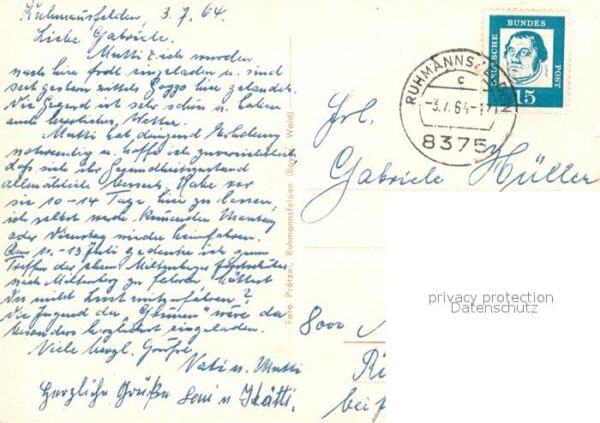 Ruhmannsfelden, 3.7.64
Liebe Gabriele.
Mutti & ich wurden
nach hier frdl. eingeladen u. sind
seit gestern mittels Goggo hier gelandet.
Die Gegend ist sehr schön u. haben
auch herrliches Wetter.
Mutti hat dringend Erholung
notwendig u. hoffe ich zuversichtlich
daß sich ihr Gesundheitszustand
allmählich bessert. Habe vor
sie 10-14 Tage hier zu lassen,
ich selbst werde kommenden Montag
oder Dienstag wieder heimfahren.
Am 11.-13 Juli gedenke ich zum
Treffen der ehem. Miltenberger
nach Miltenberg zu fahren. Hättest
Du nicht Lust mitzufahren?
Die Jugend der "Grünen" wäre da
besonders herzlichst eingeladen.
Viele herzl. Grüße
Vati u. Mutti
Herzliche Grüße u Kätti.
Foto Prötzel, Ruhmannsfelden (Bayr. Wald)
DEUTSCHE BUNDESPOST
15
RUHMANNSFELDEN
c
-3.7.64-17
8375
Frl.
Gabriele Müller
8000
privacy protection
Datenschutz